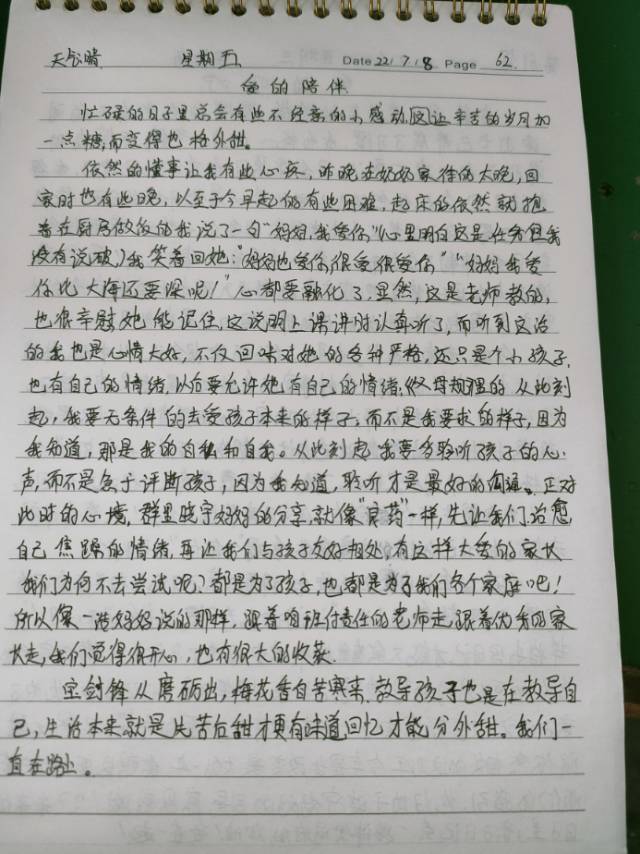 天气晴 星期五 Date 22/7/8 Page 62
爱的陪伴
忙碌的日子里总会有些不经意的小感动因让辛苦的岁月加
一点糖,而变得也格外甜。
依然的懂事让我有些心疼,昨晚在奶奶家待的太晚,回
家时也有些晚,以至于今早起的有些困难,起床的依然就抱
着在厨房做饭的我说了一句"妈妈,我爱你"(心里明白这是任务但我
没有说破)我笑着回她:"妈妈也爱你,很爱很爱你""妈妈我爱
你比大海还要深呢!"心都要融化了,显然,这是老师教的,
也很辛慰她能记住,这说明上课讲时认真听了,而听到这话
的我也是心情大好,不仅回味对她的各种严格,还只是个小孩子,
也有自己的情绪,以后要允许他有自己的情绪;《父母规》里的 从此刻
起,我要无条件的去爱孩子本来的样子,而不是我要求的样子,因为
我知道,那是我的自私和自我。从此刻起我要多聆听孩子的心
声,而不是急于评断孩子,因为我知道,聆听才是最好的沟通。正对
此时的心境,群里晓宇妈妈的分享,就像"良药"一样,先让我们治愈
自己焦躁的情绪,再让我们与孩子友好相处,有这样大爱的家长
我们为何不去尝试呢?都是为了孩子,也都是为了我们各个家庭吧!
所以像一诺妈妈说的那样,跟着咱班付责任的老师走,跟着优秀的家
长走,我们觉得很开心,也有很大的收获.
宝剑锋从磨砺出,梅花香自苦寒来.教导孩子也是在教导自
己,生活本来就是先苦后甜才更有味道回忆才能分外甜。我们一
直在路上。